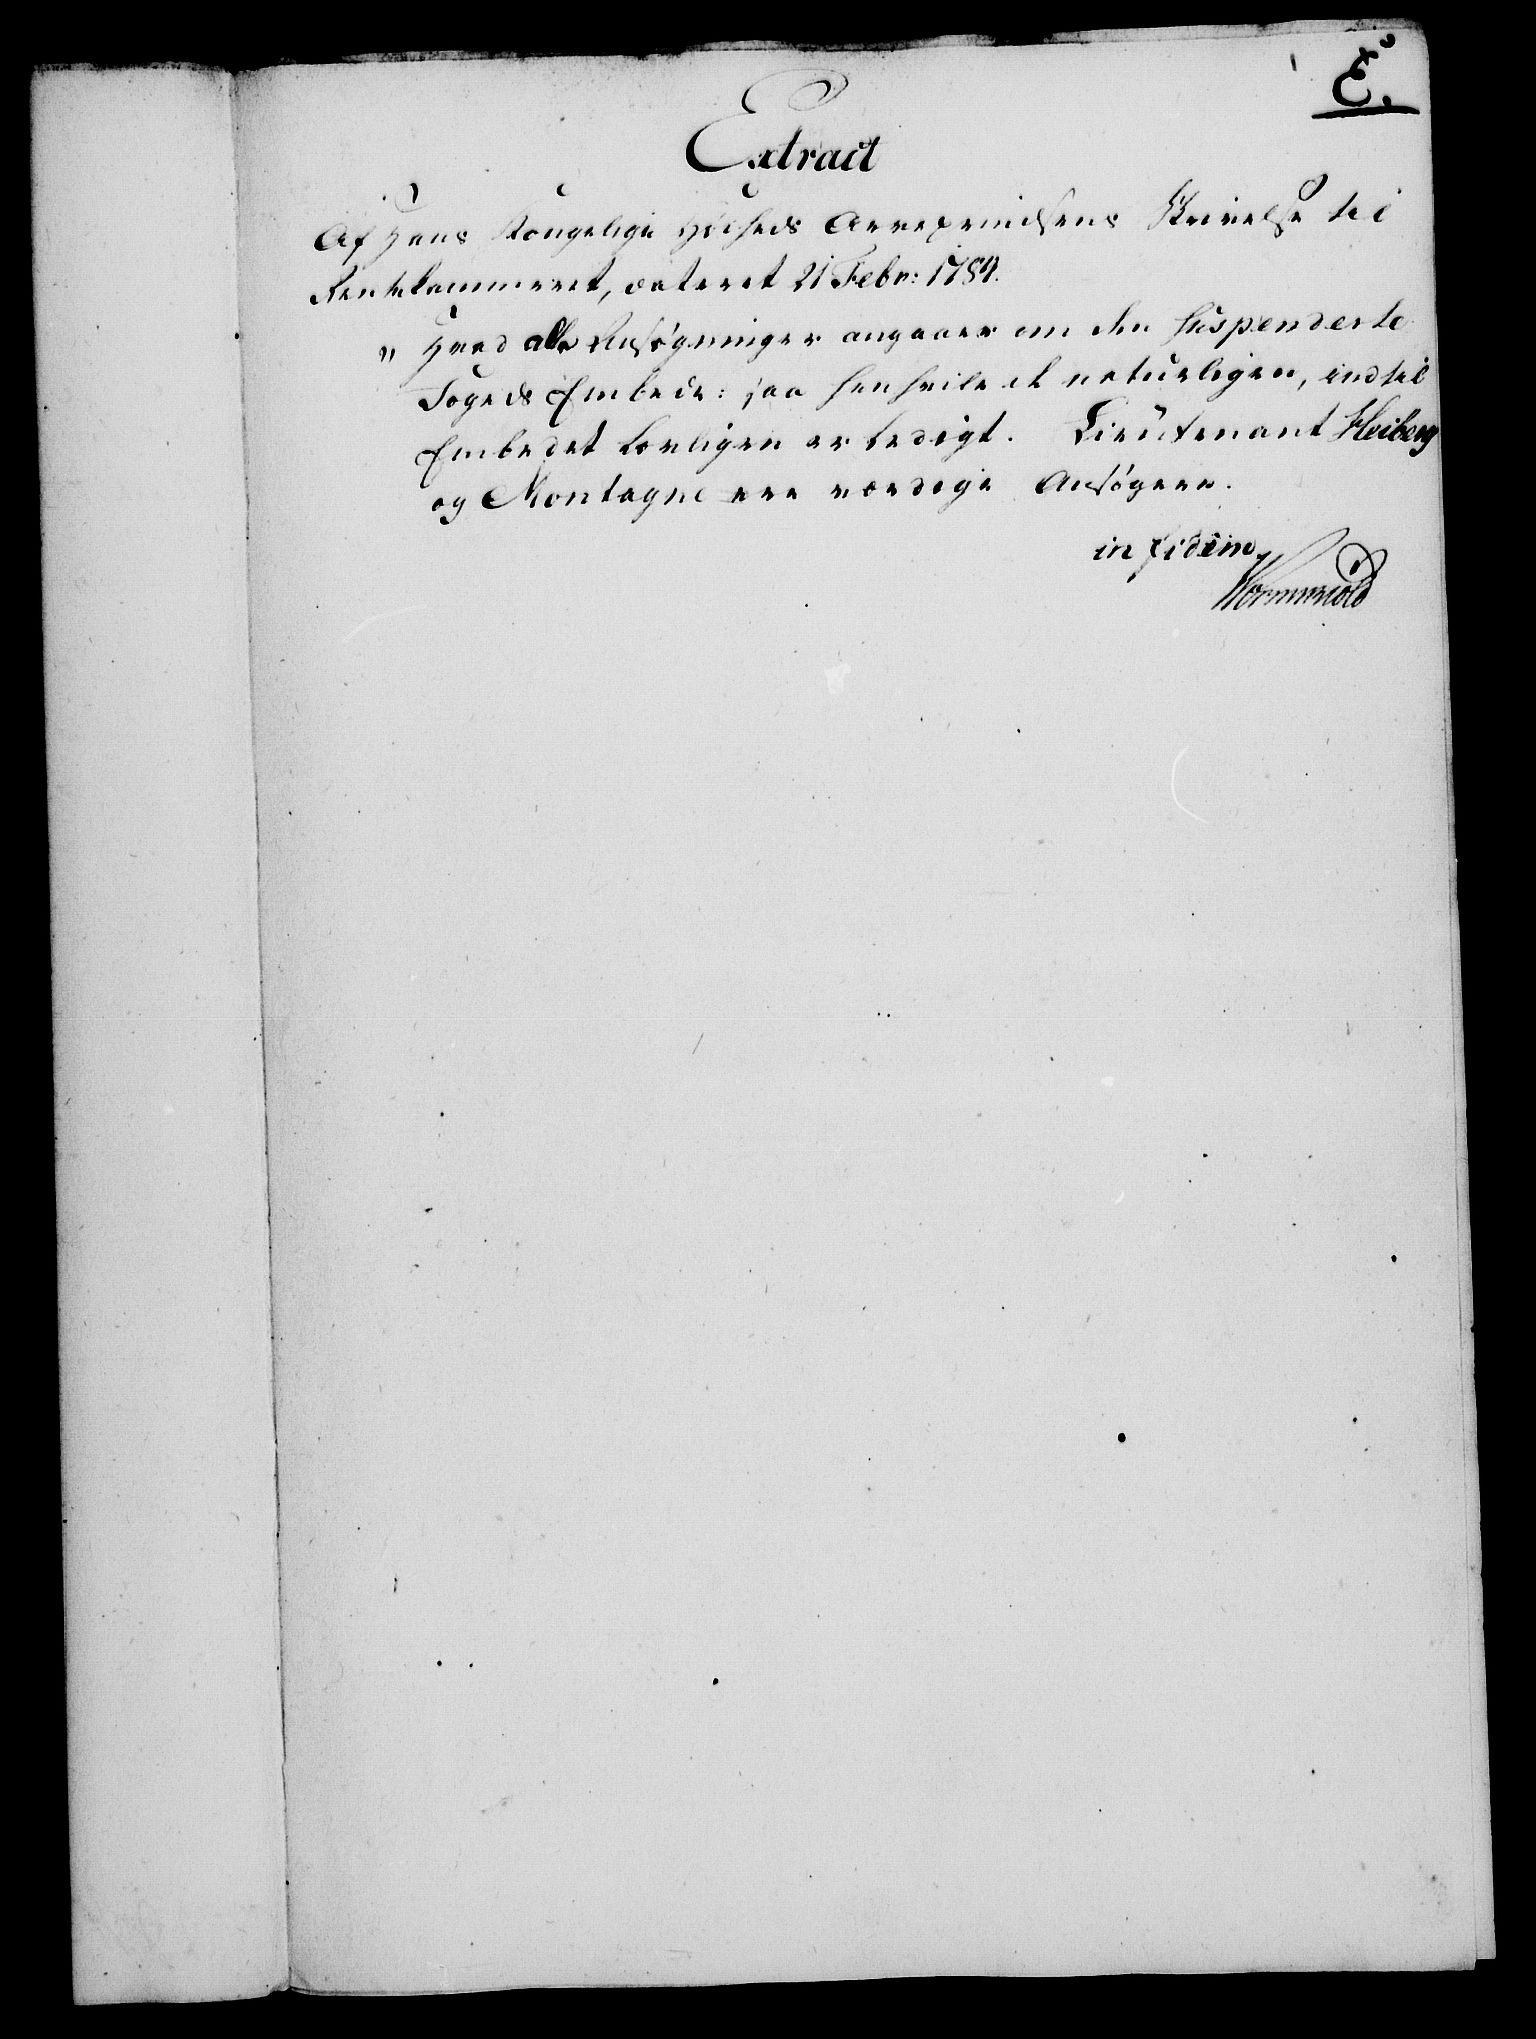 E.
Extract
Af Hans Kongelige Høiheds Arveprindsens Skrivelse til
Rentekammeret, dateret 21 Febr: 1784.
" Hvad alle Ansøgninger angaaer om den suspenderte
Fogeds Embede: saa henhvile de naturligen, indtil
Embedet lovligen er ledigt. Lieutenant Heiberg
og Montagne ere værdige Ansøgere.
in fidem
Wormskiold